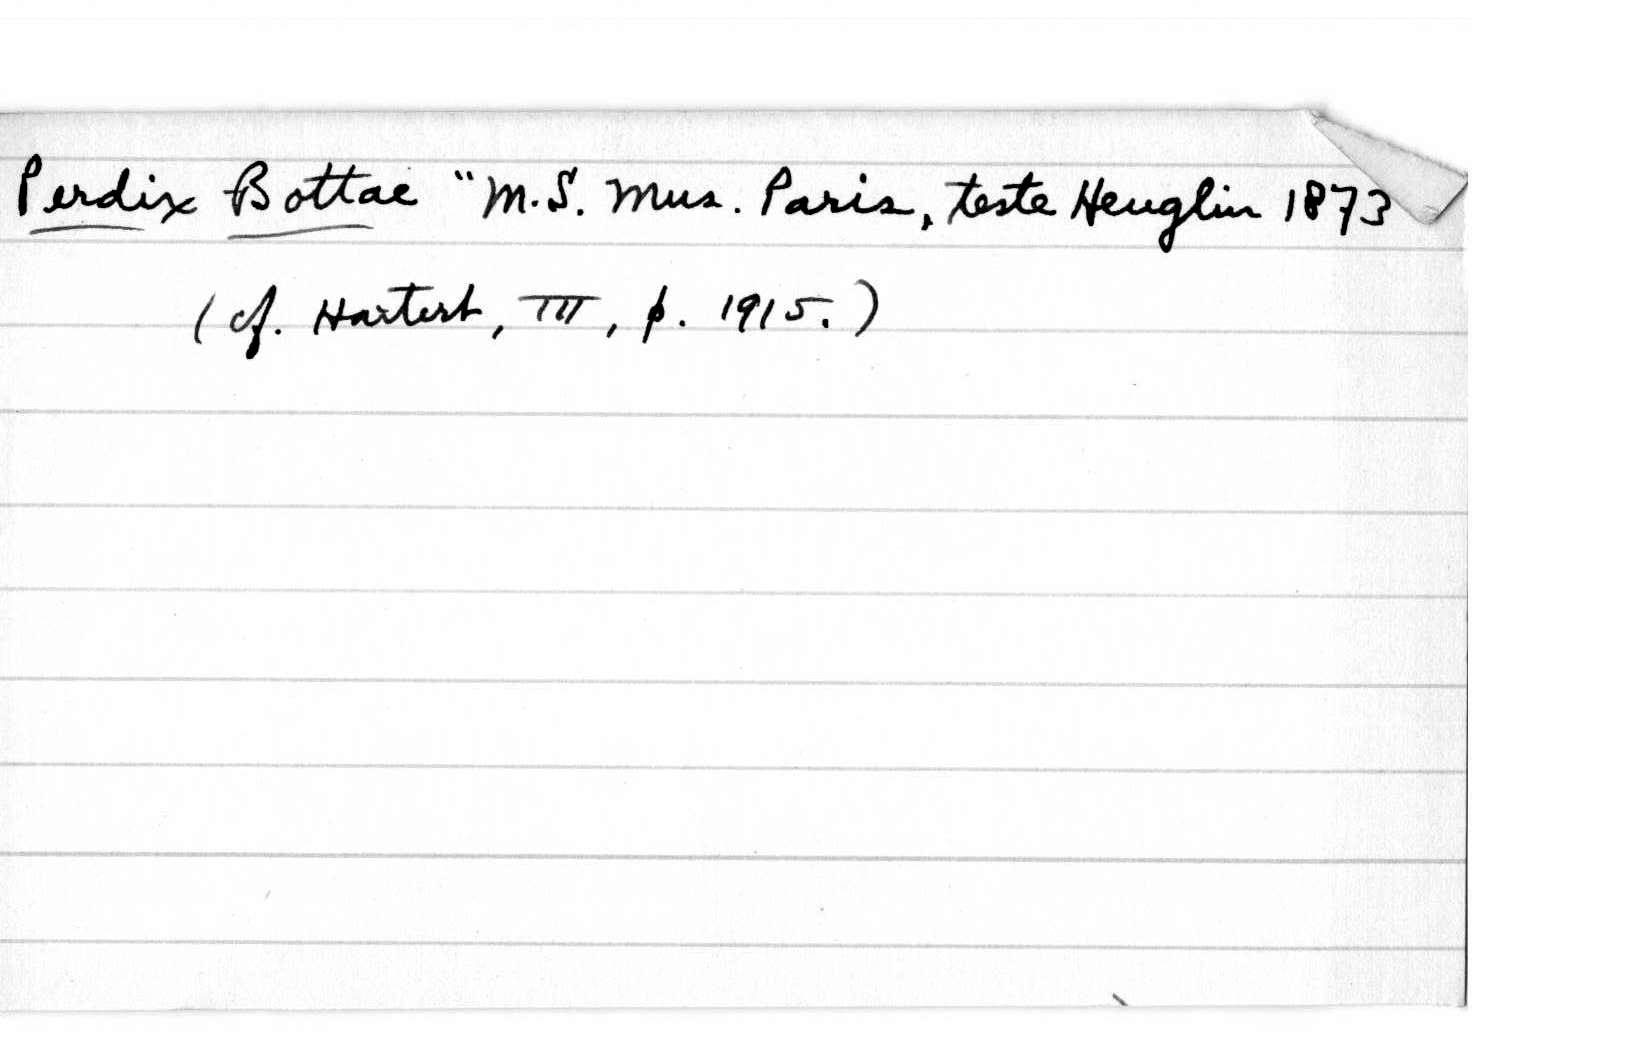 Perdix Bottae "M.S. Mus. Paris, teste Heuglin 1873
(cf. Hartert, III, p. 1915.)